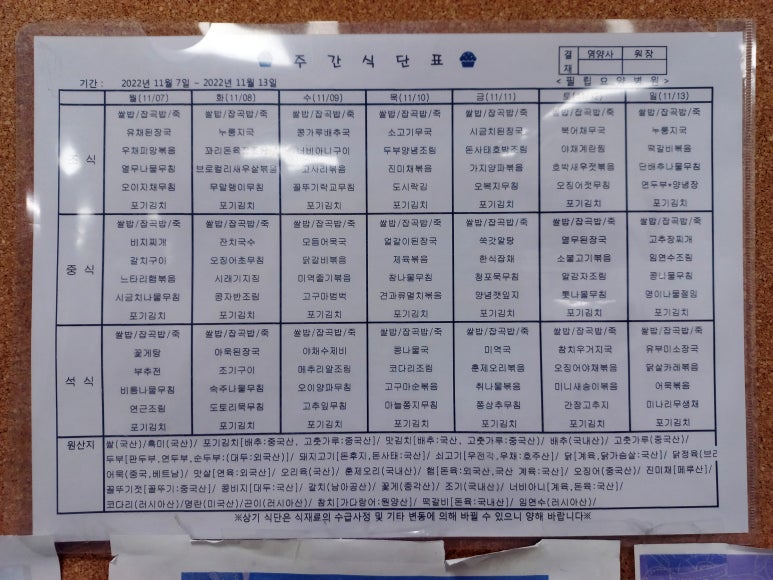 주 간 식 단 표
결 재 영양사 원 장
기간 : 2022년 11월 7일 ~ 2022년 11월 13일
<필립요양병원>
월(11/07) 화(11/08) 수(11/09) 목(11/10) 금(11/11) 토 일(11/13)
쌀밥/잡곡밥/죽 쌀밥/잡곡밥/죽 쌀밥/잡곡밥/죽 쌀밥/잡곡밥/죽 쌀밥/잡곡밥/죽 쌀밥/잡곡밥/죽 쌀밥/잡곡밥/죽
유채된장국 누룽지국 콩가루배추국 소고기무국 시금치된장국 북어채무국 누룽지국
조 식 우채피망볶음 꼬리돈육 너비아니구이 두부양념조림 돈사태호박조림 야채계란찜 떡갈비볶음
열무나물무침 브로컬리새우살볶음 고사리볶음 진미채볶음 가지양파볶음 호박새우젓볶음 단배추나물무침
오이지채무침 무말랭이무침 꼴뚜기락교무침 도시락김 오복지무침 오징어젓무침 연두부*양념장
포기김치 포기김치 포기김치 포기김치 포기김치 포기김치 포기김치
쌀밥/잡곡밥/죽 쌀밥/잡곡밥/죽 쌀밥/잡곡밥/죽 쌀밥/잡곡밥/죽 쌀밥/잡곡밥/죽 쌀밥/잡곡밥/죽 쌀밥/잡곡밥/죽
비지찌개 잔치국수 모듬어묵국 얼갈이된장국 쑥갓알탕 열무된장국 고추장찌개
중 식 갈치구이 오징어초무침 닭갈비볶음 제육볶음 한식잡채 소불고기볶음 임연수조림
느타리햄볶음 시래기지짐 미역줄기볶음 참나물무침 청포묵무침 알감자조림 콩나물무침
시금치나물무침 콩자반조림 고구마범벅 견과류멸치볶음 양념깻잎지 톳나물무침 명이나물절임
포기김치 포기김치 포기김치 포기김치 포기김치 포기김치 포기김치
쌀밥/잡곡밥/죽 쌀밥/잡곡밥/죽 쌀밥/잡곡밥/죽 쌀밥/잡곡밥/죽 쌀밥/잡곡밥/죽 쌀밥/잡곡밥/죽 쌀밥/잡곡밥/죽
꽃게탕 아욱된장국 야채수제비 콩나물국 미역국 참치우거지국 유부미소장국
석 식 부추전 조기구이 메추리알조림 코다리조림 훈제오리볶음 오징어야채볶음 닭살카레볶음
비름나물무침 숙주나물무침 오이양파무침 고구마순볶음 취나물볶음 미니새송이볶음 어묵볶음
연근조림 도토리묵무침 고추잎무침 마늘쫑지무침 쫑상추무침 간장고추지 미나리무생채
포기김치 포기김치 포기김치 포기김치 포기김치 포기김치 포기김치
원산지 쌀(국산)/흑미(국산)/ 포기김치[배추:중국산, 고춧가루:중국산]/ 맛김치[배추:국산, 고춧가루:중국산]/ 배추(국내산)/ 고춧가루(중국산)/
두부[판두부,연두부,순두부:(대두:외국산)]/ 돼지고기[돈후지,돈사태:국산]/ 쇠고기[우전각,우채:호주산]/ 닭[계육,닭가슴살:국산]/ 닭정육(브라
어묵(중국,베트남)/ 맛살[연육:외국산]/ 오리육(국산)/ 훈제오리(국내산)/ 햄[돈육:외국산,국산 계육:국산]/ 오징어(중국산)/ 진미채[페루산]/
꼴뚜기젓[꼴뚜기:중국산]/ 콩비지[대두:국산]/ 갈치(남아공산)/ 꽃게(중각산)/ 조기(국내산)/ 너비아니[계육,돈육:국산]/
코다리(러시아산)/명란(미국산)/곤이(러시아산)/ 참치[가다랑어:원양산]/ 떡갈비[돈육:국내산]/ 임연수(러시아산)/
※상기 식단은 식재료의 수급사정 및 기타 변동에 의해 바뀔 수 있으니 양해 바랍니다※